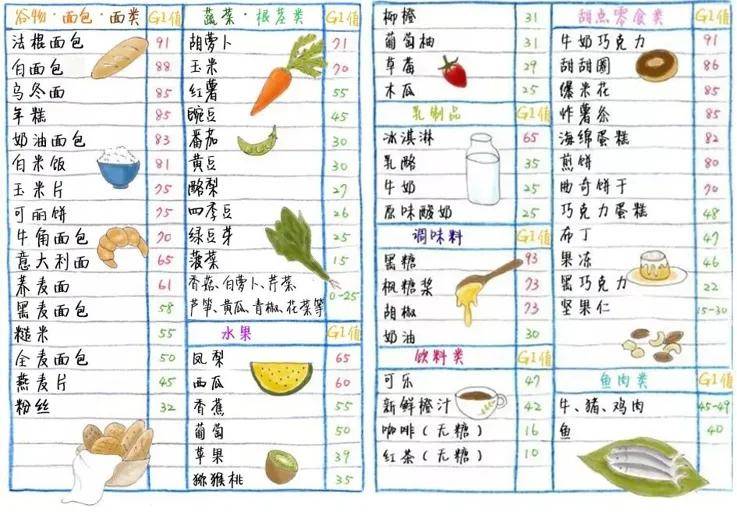 谷物·面包·面类 GI值
法棍面包 91
白面包 88
乌冬面 85
年糕 85
奶油面包 83
白米饭 81
玉米片 75
可丽饼 75
牛角面包 70
意大利面 65
荞麦面 61
黑麦面包 58
糙米 55
全麦面包 50
燕麦片 45
粉丝 32
蔬菜·根茎类 GI值
胡萝卜 71
玉米 70
红薯 55
豌豆 45
番茄 30
黄豆 30
酪梨 27
四季豆 26
绿豆芽 25
菠菜 15
香菇、白萝卜、芹菜
芦笋、黄瓜、青椒、花菜等 0-25
水果 GI值
凤梨 65
西瓜 60
香蕉 55
葡萄 50
苹果 39
猕猴桃 35
柳橙 31
葡萄柚 31
草莓 29
木瓜 25
乳制品 GI值
冰淇淋 65
乳酪 35
牛奶 25
原味酸奶 25
调味料 GI值
黑糖 93
枫糖浆 73
胡椒 73
奶油 30
饮料类 GI值
可乐 47
新鲜橙汁 42
咖啡(无糖) 16
红茶(无糖) 10
甜点零食类 GI值
牛奶巧克力 91
甜甜圈 86
爆米花 85
炸薯条 85
海绵蛋糕 82
煎饼 80
曲奇饼干 70
巧克力蛋糕 48
布丁 47
果冻 46
黑巧克力 22
坚果仁 15-30
鱼肉类 GI值
牛、猪、鸡肉 45-49
鱼 40